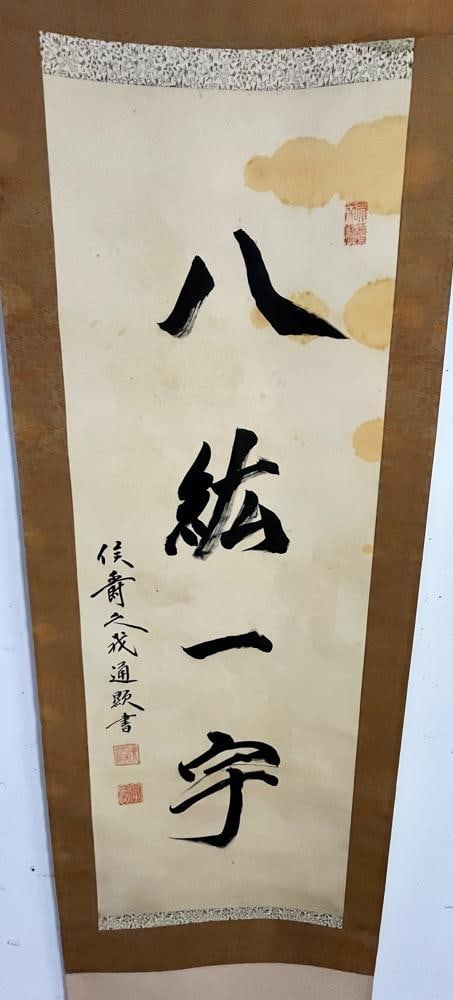 八紘一宇
侯爵久我通顕書